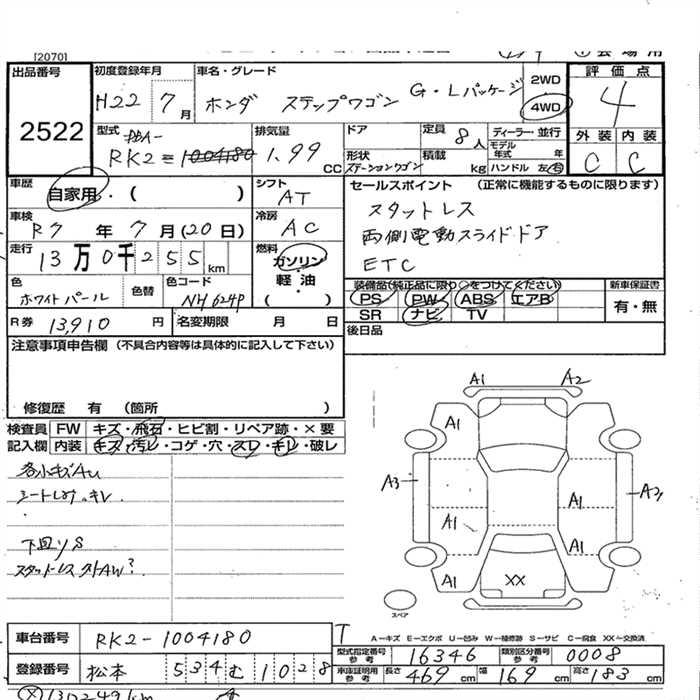 [2070]
出品番号 初度登録年月 車名・グレード 2WD 評価点
2522 H22 7月 ホンダ ステップワゴン G・Lパッケージ 4WD 4
型式 排気量 ドア 定員 8人 ディーラー・並行 外装 内装
RK2=1004180 1.99 CC 形状 ステーションワゴン 積載 kg モデル年式 年 ハンドル 左・右 C C
車歴 自家用・( ) シフト AT セールスポイント (正常に機能するものに限ります)
車検 R7年 7月(20日) 冷房 AC スタットレス
走行 13万0千255km 燃料 ガソリン・軽油 ( ) 両側電動スライドドア
ETC
色 ホワイトパール 色替 色コード NH624P 装備品(純正品に限り○をつけてください) 新車保証書
PS PW ABS エアB 有・無
R券 13,910円 名変期限 月 日 SR ナビ TV
注意事項申告欄 (不具合内容等は具体的に記入して下さい) 後日品
修復歴 有 (箇所 )
検査員 FW キズ・飛石・ヒビ割・リペア跡・×要
記入欄 内装 キズ・汚レ・コゲ・穴・スレ・キレ・破レ
各小キズAu
下回りS
スタットレス外AW?
A1 A2
A1
A3 A1 A2
A1 A1
A1 XX
スペア
A−キズ E−エクボ U−凹み W−補修跡 S−サビ C−腐食 XX−交換済
車台番号 RK2-1004180
型式指定番号 参考 16346 類別区分番号 参考 0008
登録番号 松本 534 む 1028
車庫証明用 参考 長さ 469cm 幅 169cm 高さ 183cm